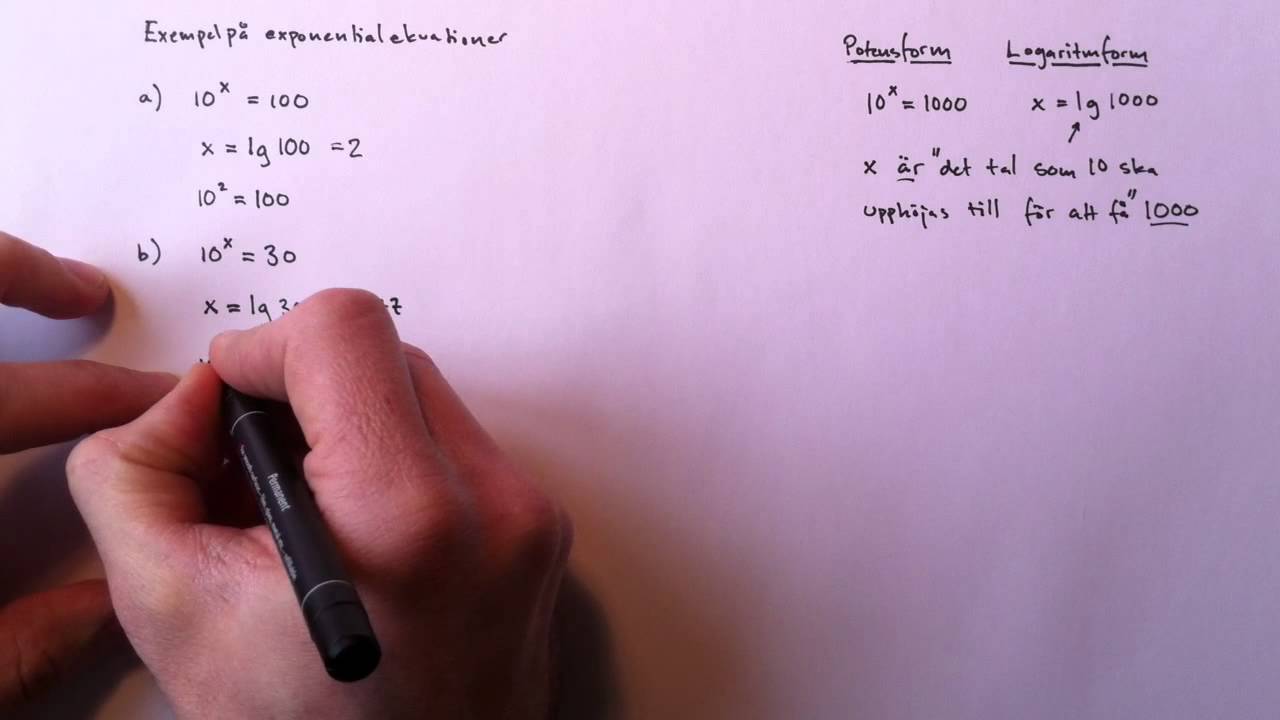 Exempel på exponentialekvationer
a) 10ˣ = 100
x = lg 100 = 2
10² = 100
b) 10ˣ = 30
x = lg
Potensform Logaritmform
10ˣ = 1000 x = lg 1000
x är "det tal som 10 ska
upphöjas till för att få" 1000
Permanent